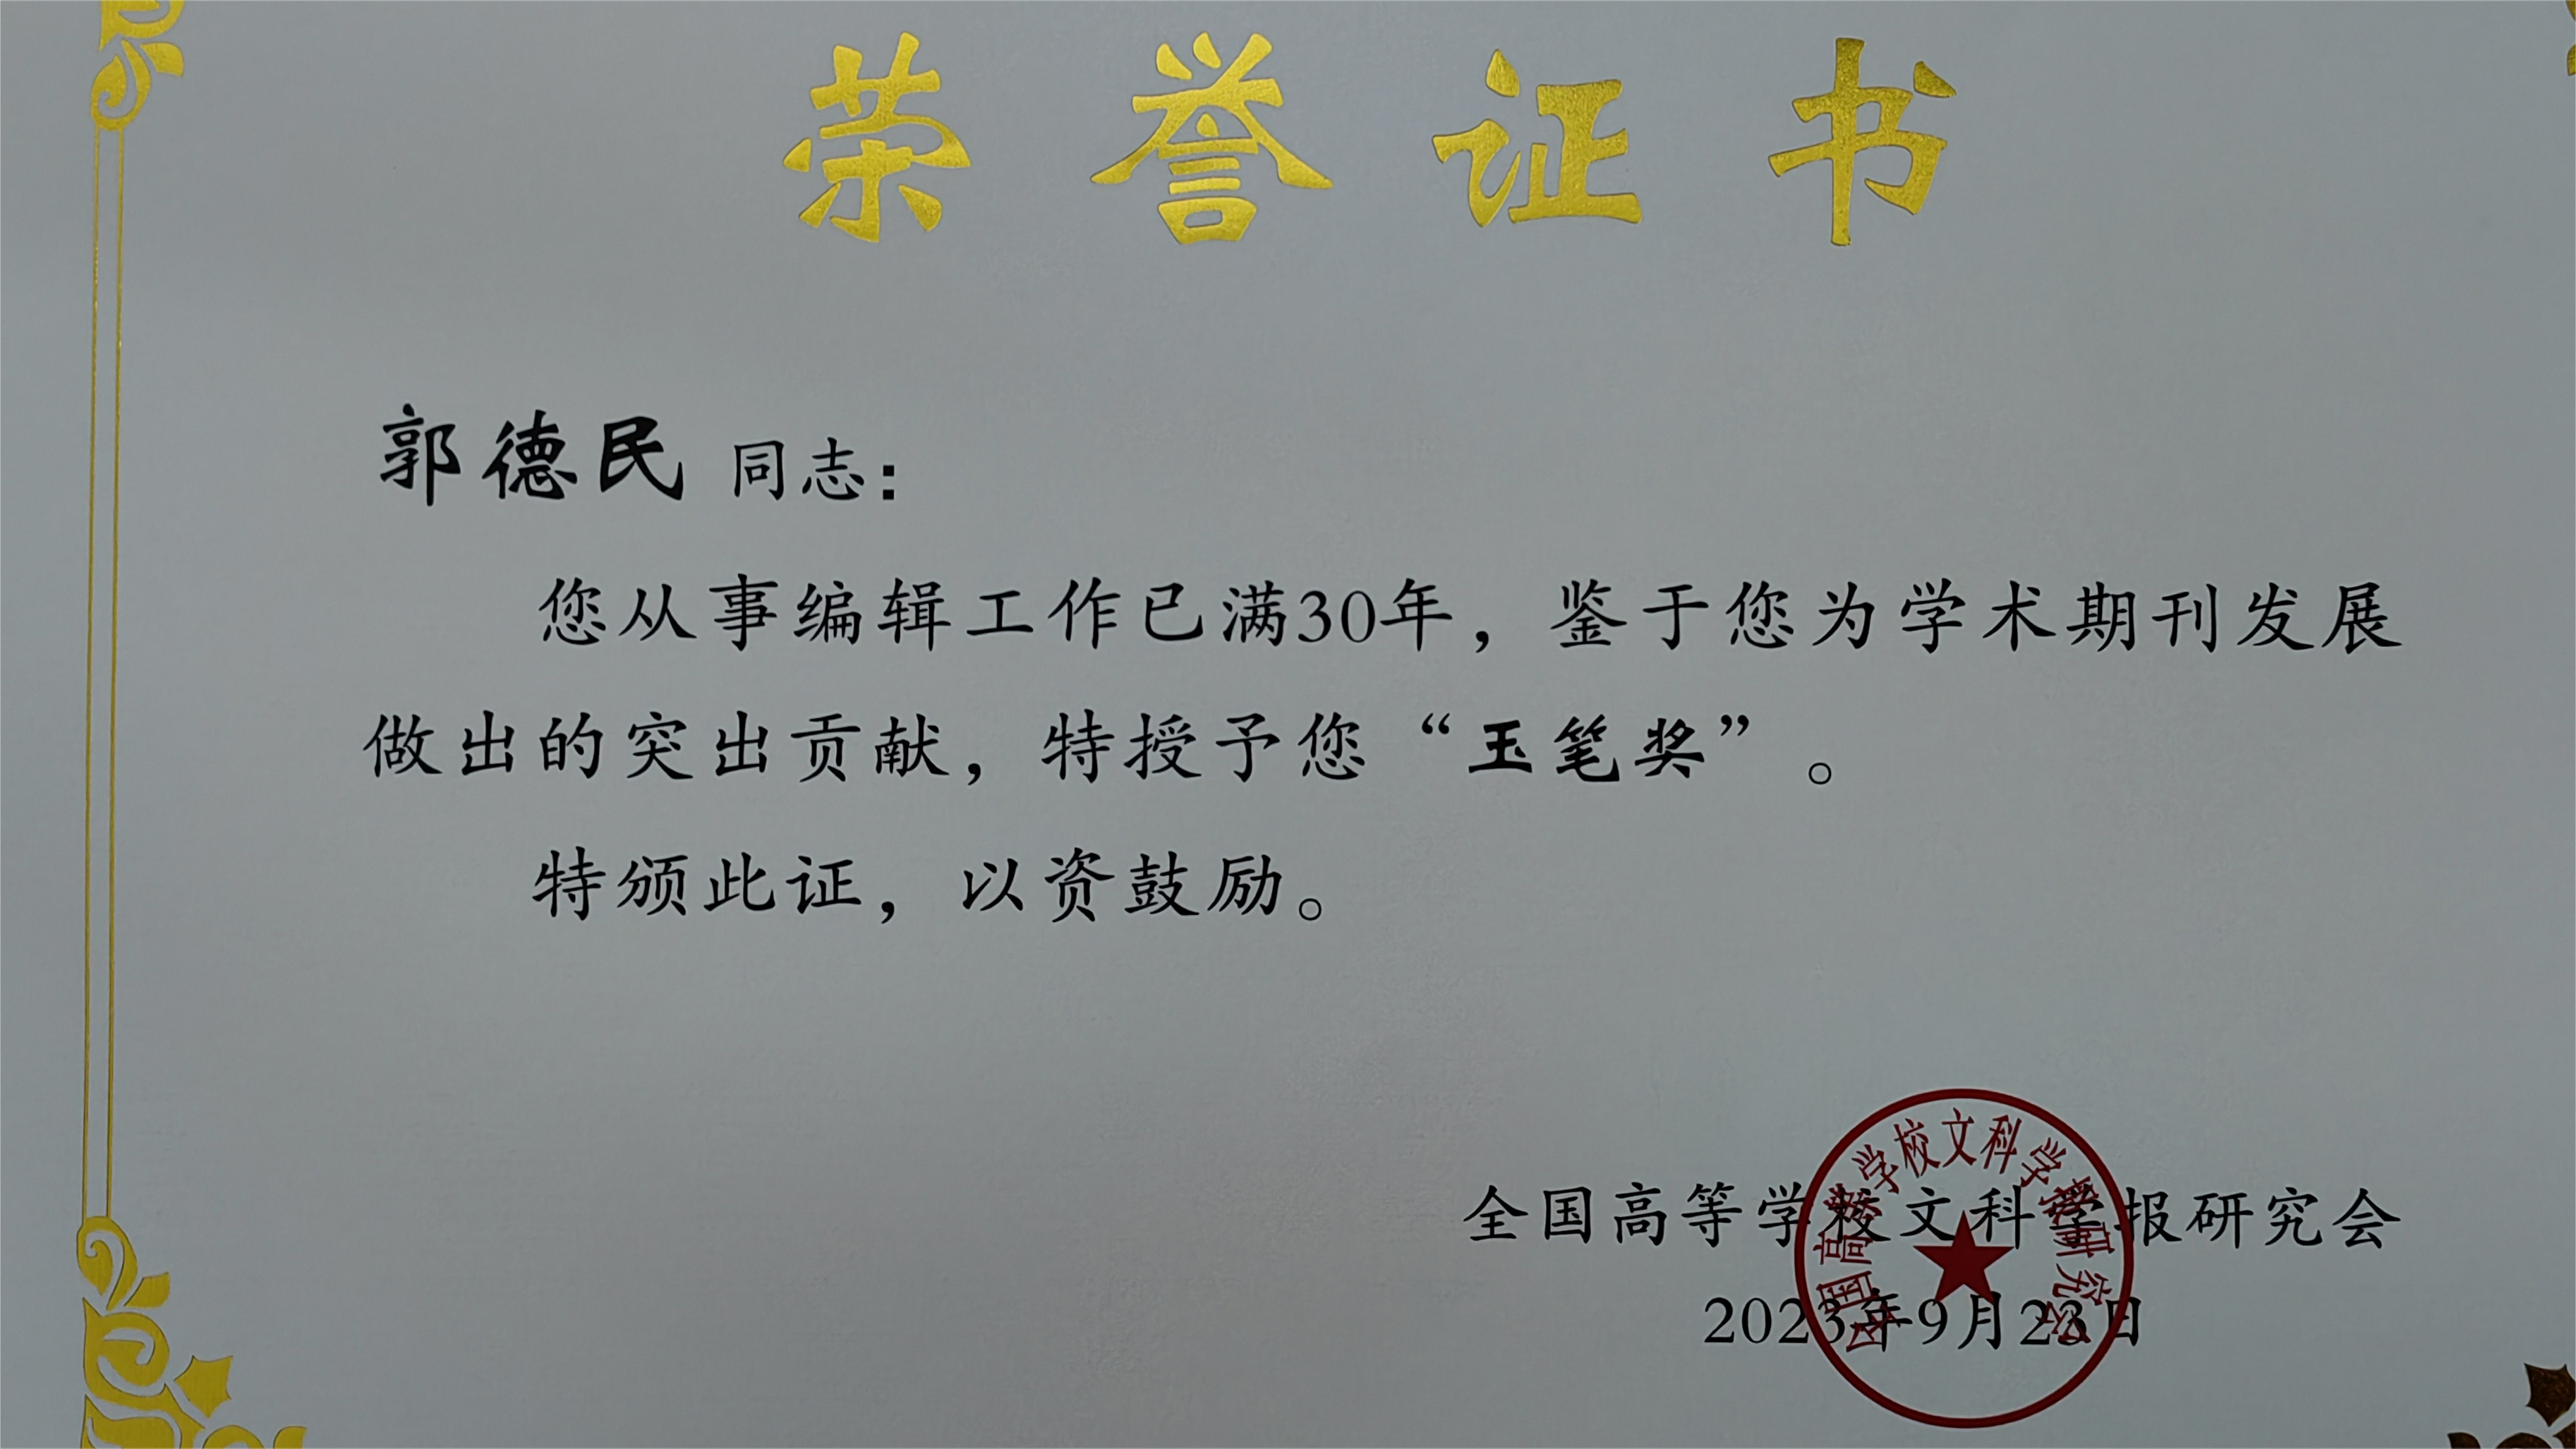 荣誉证书
郭德民 同志：
您从事编辑工作已满30年，鉴于您为学术期刊发展
做出的突出贡献，特授予您“玉笔奖”。
特颁此证，以资鼓励。
全国高等学校文科学报研究会
2023年9月23日
全国高等学校文科学报研究会